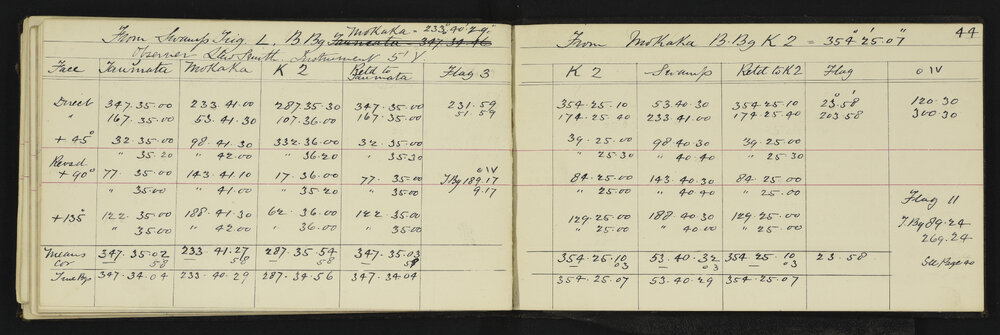 Mokaka = 233° 40' 29"
From Swamp Trig L. B Bg Taumata = 347.34.46
Observer Stew Smith Instrument 5" V
Face Taumata Mokaka K 2 Retd to Taumata Flag 3
Direct 347.35.00 233.41.00 287.35.30 347.35.00 231.59
" 167.35.00 53.41.30 107.36.00 167.35.00 51.59
+ 45° 32.35.00 98.41.30 332.36.00 32.35.00
" 35.20 " 42.00 " 36.20 " 35.30
Revsd 0 IV
+ 90° 77.35.00 143.41.10 17.36.00 77.35.00 T Bg 189.17
" 35.00 " 41.00 " 35.20 " 35.00 9.17
+ 135° 122.35.00 188.41.30 62.36.00 122.35.00
" 35.00 " 42.00 " 36.00 " 35.00
Means 347.35.02 233.41.27 287.35.54 347.35.03
Cor 58 58 58 58
True Bgs 347.34.04 233.40.29 287.34.56 347.34.04
44
From Mokaka B. Bg K 2 = 354° 25' 07"
K 2 Swamp Retd to K2 Flag 0 IV
354.25.10 53.40.30 354.25.10 23.58 120.30
174.25.40 233.41.00 174.25.40 203.58 300.30
39.25.00 98.40.30 39.25.00
" 25.30 " 40.40 " 25.30
84.25.00 143.40.30 84.25.00
" 25.00 " 40.40 " 25.00 Flag 11
129.25.00 188.40.30 129.25.00 T Bg 89.24
" 25.00 " 40.00 " 25.00 269.24
354.25.10 53.40.32 354.25.10 23.58 See Page 40
03 03 03
354.25.07 53.40.29 354.25.07